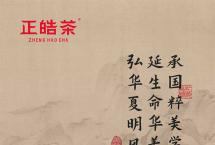 正皓茶
ZHENG HAO CHA
承国粹美学
延生命华美
弘华夏明风